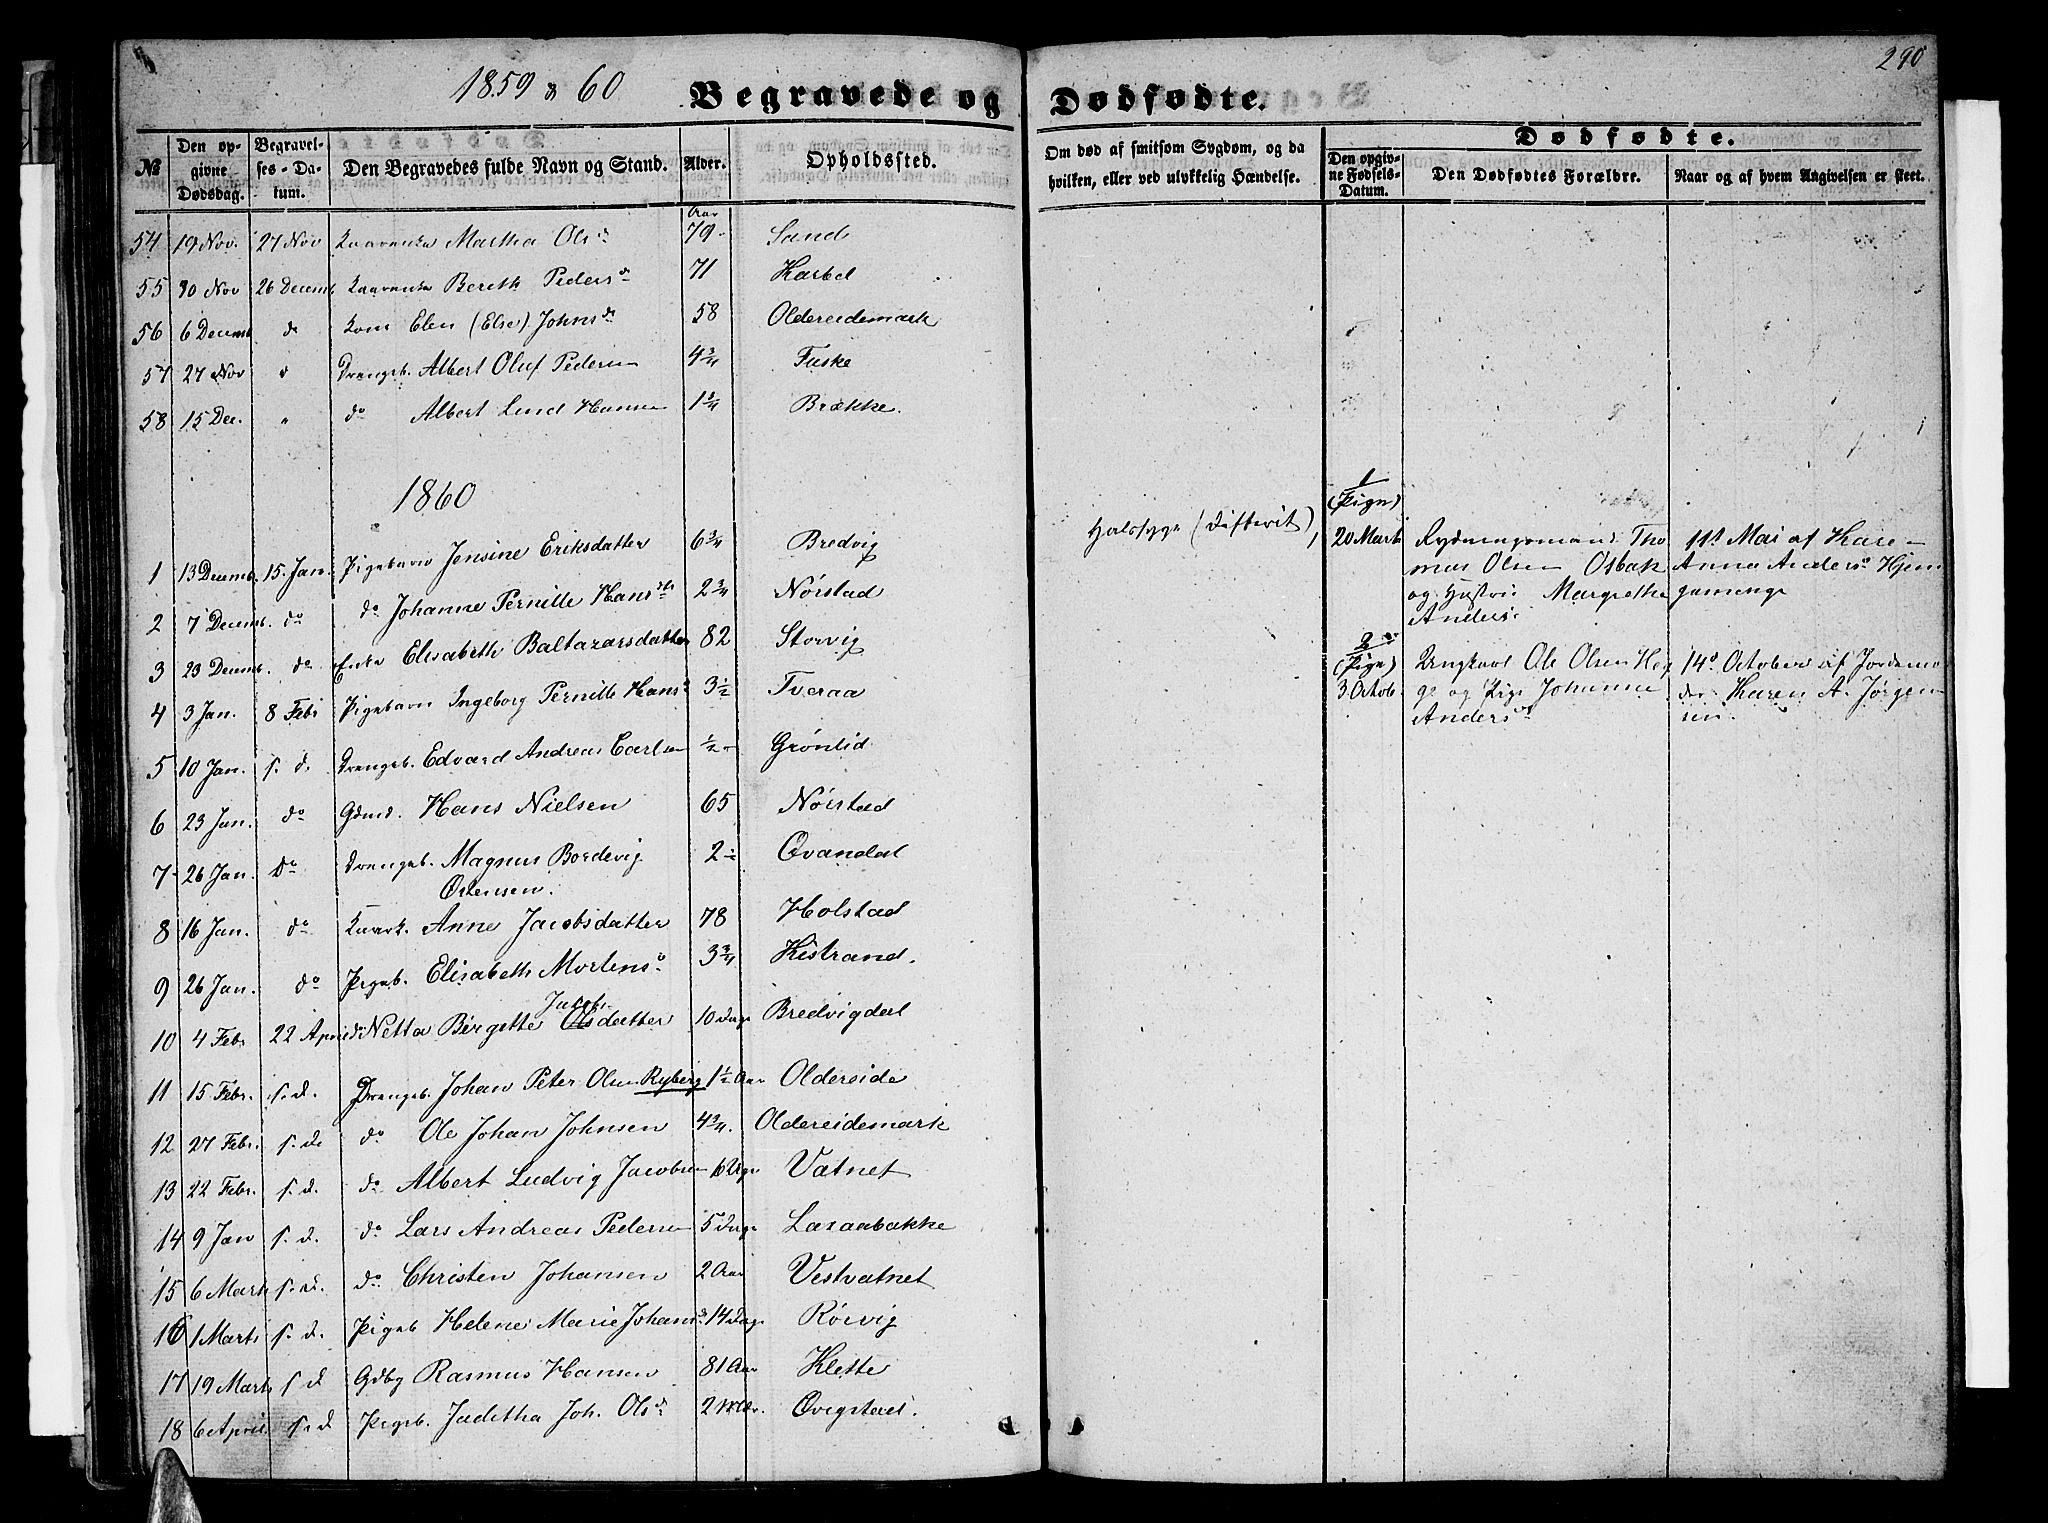 290
1859 & 60 Begravede og Dødfødte.
№ Den opgivne Dødsdag. Begravelses-Datum. Den Begravedes fulde Navn og Stand. Alder. Opholdssted. Om død af smitsom Sygdom, og da hvilken, eller ved ulykkelig Hændelse. Dødfødte. Den opgivne Fødsels-Datum. Den Dødfødtes Forældre. Naar og af hvem Angivelsen er skeet.
54 19 Nov. 27 Nov Martha Olsd. 79 Aar Sand
55 30 Nov 26 Decemb Bereth Pedersd 71 Karbøl
56 6 Decemb do Kone Elen (Else) Johnsd 58 Oldereidemark
57 27 Nov " Drengeb. Albert Oluf Pedersen 4 3/4 Fuske
58 15 Dec. " do Albert Lund Hansen 1 3/4 Brække.
1860
1 13 Decemb. 15. Jan. Pigebarn Jensine Eriksdatter 6 3/4 Bredvig Halssyge (difterit),
2 7 Decemb. do do Johanne Pernille Hansdtr 2 3/4 Nørstad
3 23 Decemb. do Enke Elisabeth Baltazarsdatter 82 Storvig
4 3 Jan. 8 Febr Pigebarn Ingeborg Pernille Hansd 3 1/2 Tveraa
5 10 Jan. s. d. Drengeb. Edvard Andreas Carlsen 1/2 Grønlid
6 23 Jan. do Gdmd. Hans Nielsen 65 Nørstad
7 26 Jan. Do Drengeb. Magnus Bordevig 2 1/2 Qvandal
Ostensen.
8 16 Jan. do Anne Jacobsdatter 78 Holstad
9 26 Jan. do Pigeb. Elisabeth Mortensd 3 3/4 Kistrand.
Jacobs
10 4 Febr 22 April do Netta Birgette Olsdatter 10 Dage Bredvigdal
11 15 Febr. s. d. Drengeb. Johan Peter Olsen Ryberg 1 1/2 Aar Oldereide
12 27 Febr. s. d. do Ole Johan Johnsen 4 3/4. Oldereidemark
13 22 Febr. s. d. do Albert Ludvig Jacobsen 6 Uger Vatnet
14 9 Jan s. d. do Lars Andreas Pedersen 5 Dage Laxaabakke
15 6 Marts s. d. do Christen Johansen 2 Aar Vestvatnet
16 1 Marts s. d. Pigeb Helene Marie Johansd 14 Dage Rørvig
17 19 Marts s d Gdbg Rasmus Hansen 81 Aar Klette
18 6 April s. d Pigeb. Juditha Joh. Olsd. 2 Mdr. Qvigstad.
1
(Pige)
20 Marts Rydningsmand Tho 11te Mai af Kare-
mas Olsen Osbak Anna Andersd
og Hustru Margrethe
Andersd.
2
(Pige) Ungkarl Ole Olsen Heg 14d October af Jordemo
3 Octob. ge og Pige Johanne der Karen A. Jørgen
Andersd sen.